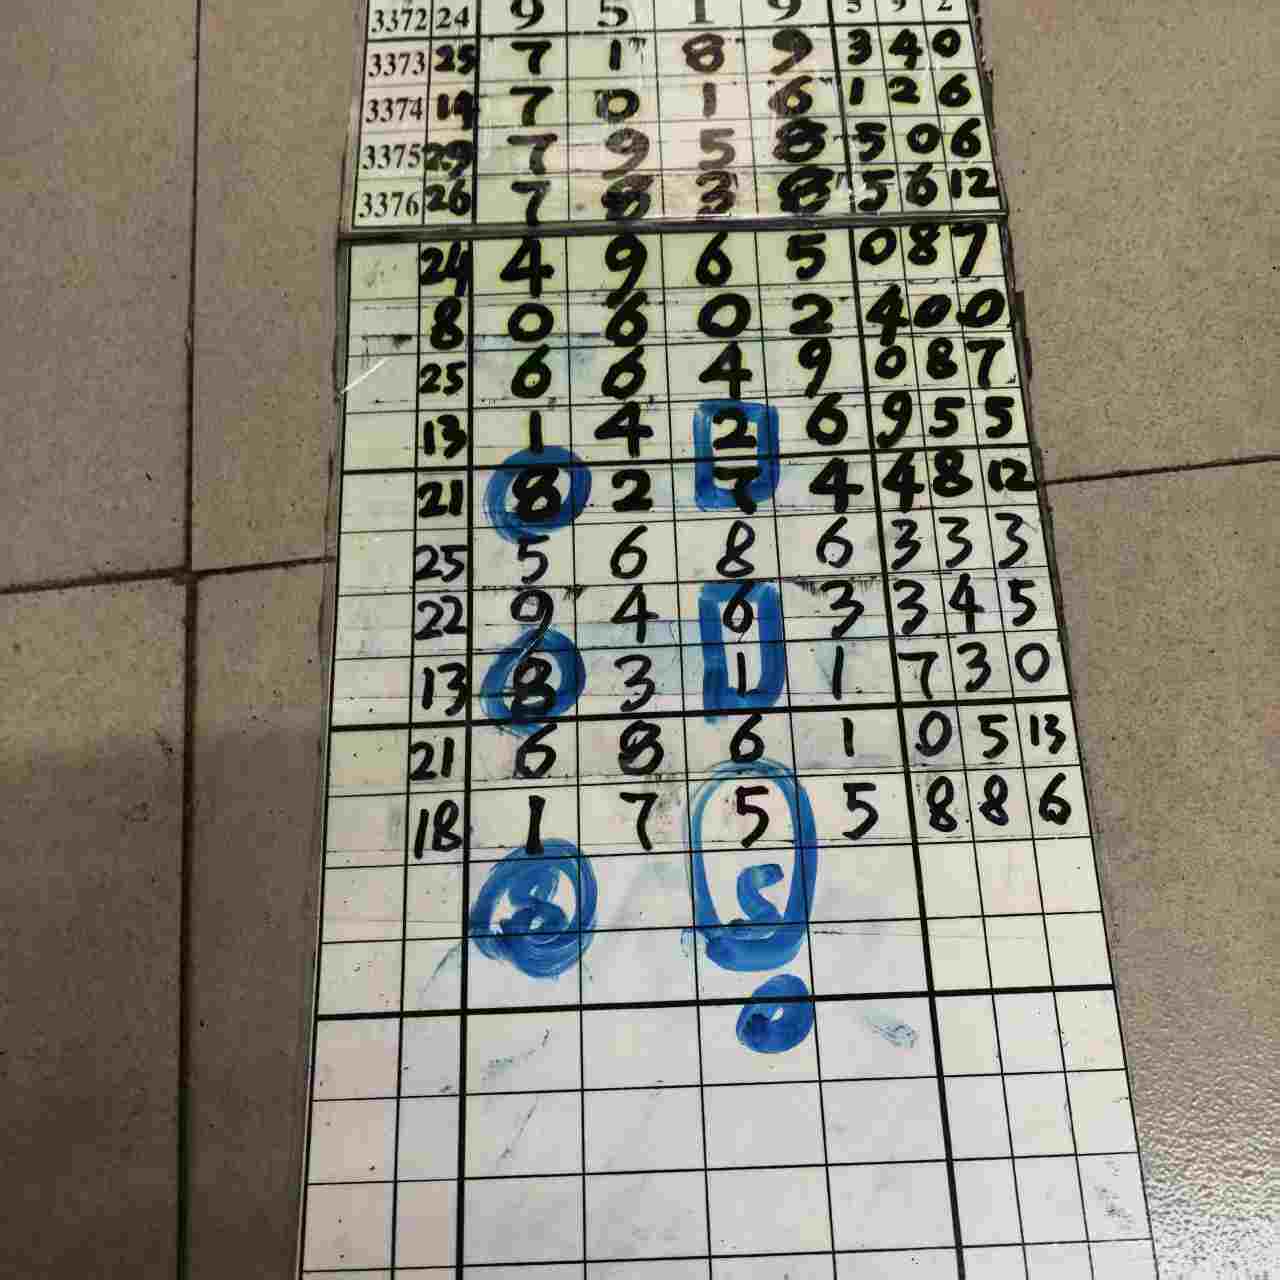 3372 24 9 5 1 9 5 9 2
3373 25 7 1 8 9 3 4 0
3374 14 7 0 1 6 1 2 6
3375 29 7 9 5 8 5 0 6
3376 26 7 8 3 8 5 6 12
24 4 9 6 5 0 8 7
8 0 6 0 2 4 0 0
25 6 6 4 9 0 8 7
13 1 4 2 6 9 5 5
21 8 2 7 4 4 8 12
25 5 6 8 6 3 3 3
22 9 4 6 3 3 4 5
13 8 3 1 1 7 3 0
21 6 8 6 1 0 5 13
18 1 7 5 5 8 8 6
8 5